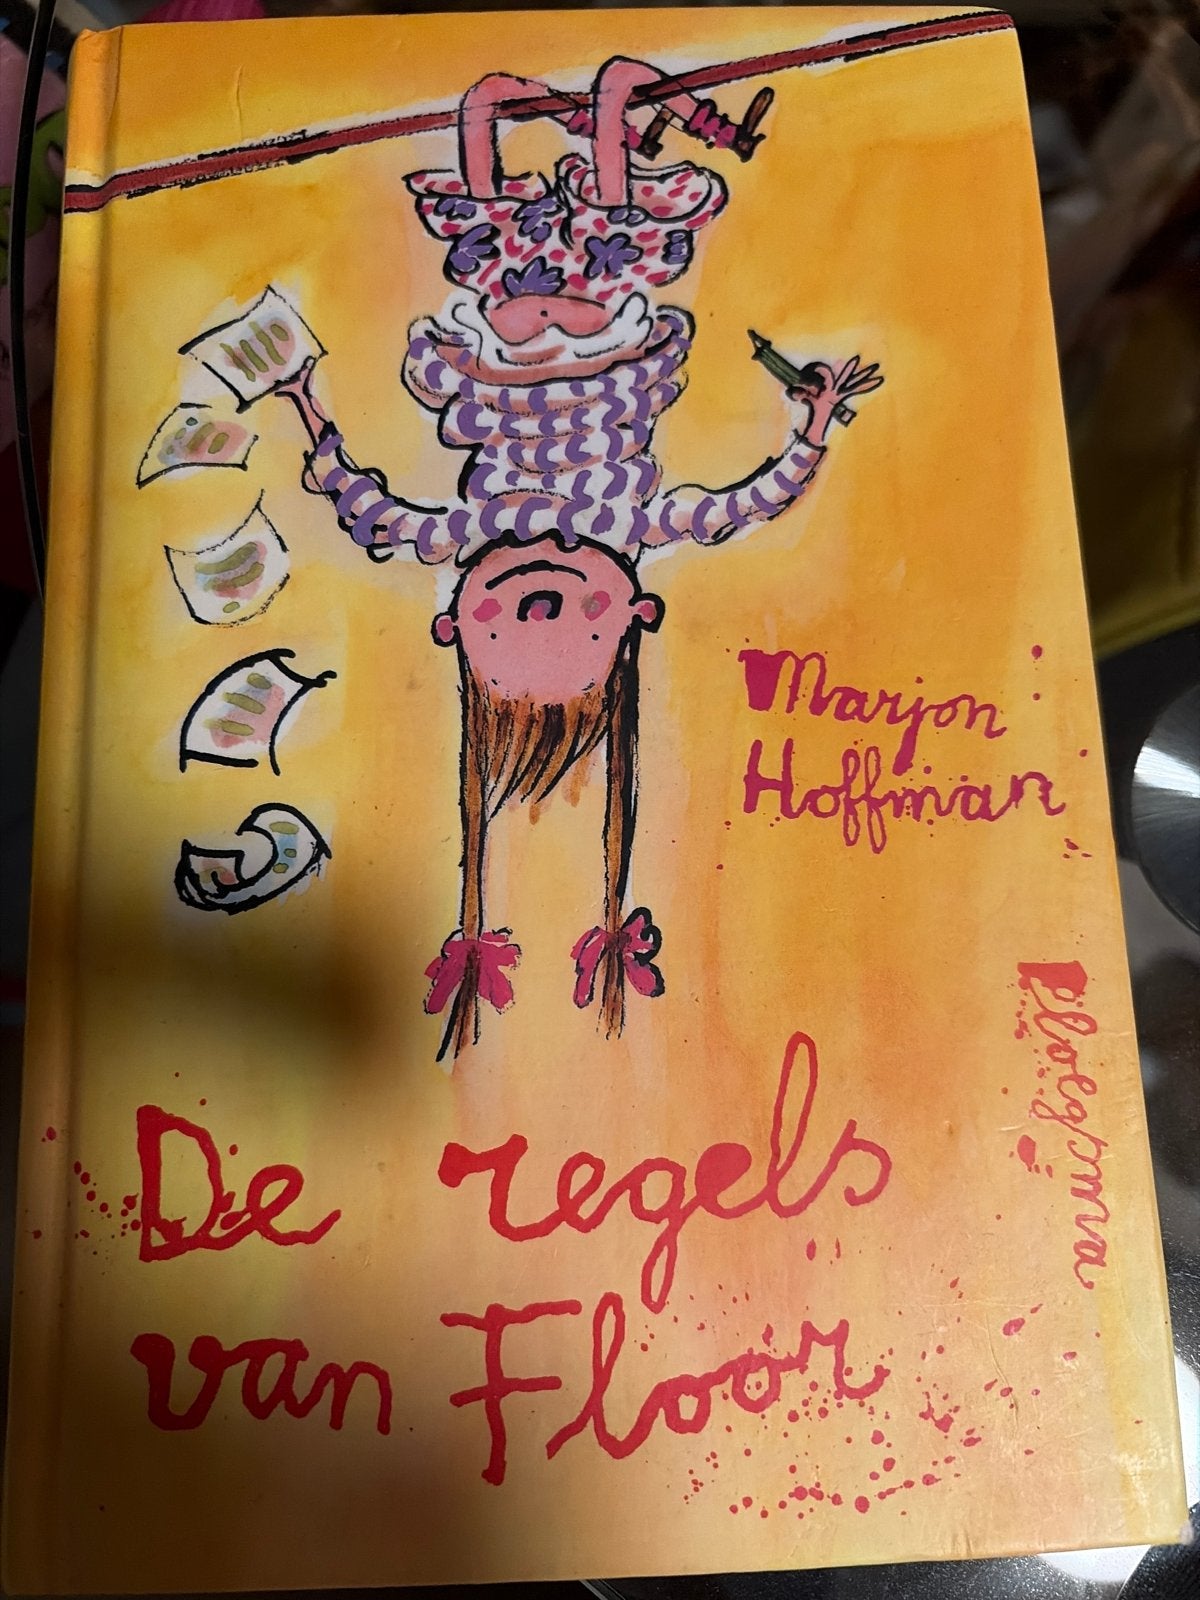 Marjon
Hoffman
Ploegsma
De regels
van Floor